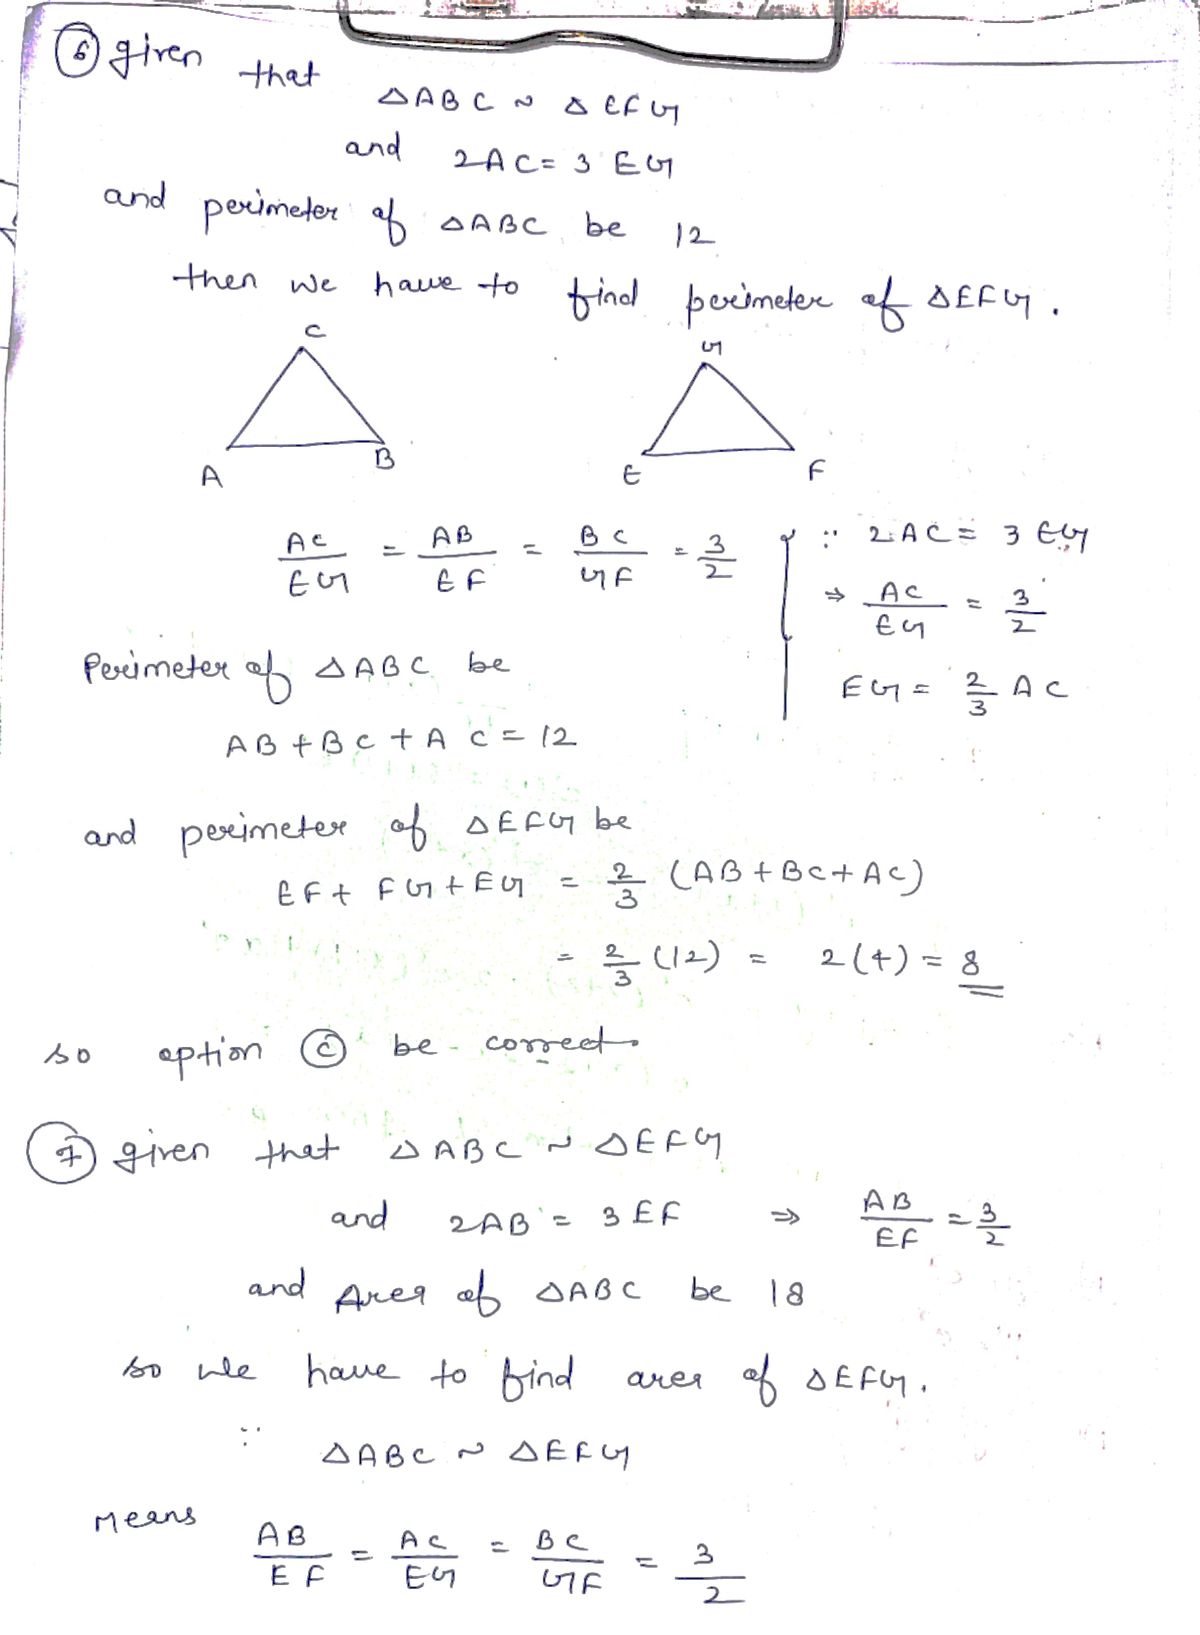 6 given that
△ABC ~ △EFG
and 2AC = 3 EG
and perimeter of △ABC be 12
then we have to find perimeter of △EFG.
C
G
A
B
E
F
AC/EG = AB/EF = BC/GF = 3/2
∵ 2AC = 3 EG
⇒ AC/EG = 3/2
EG = 2/3 AC
Perimeter of △ABC be
AB + BC + AC = 12
and perimeter of △EFG be
EF + FG + EG = 2/3 (AB + BC + AC)
= 2/3 (12) = 2(4) = 8
so option (c) be correct.
7 given that △ABC ~ △EFG
and 2AB = 3 EF ⇒ AB/EF = 3/2
and Area of △ABC be 18
so we have to find area of △EFG.
∵ △ABC ~ △EFG
Means AB/EF = AC/EG = BC/GF = 3/2